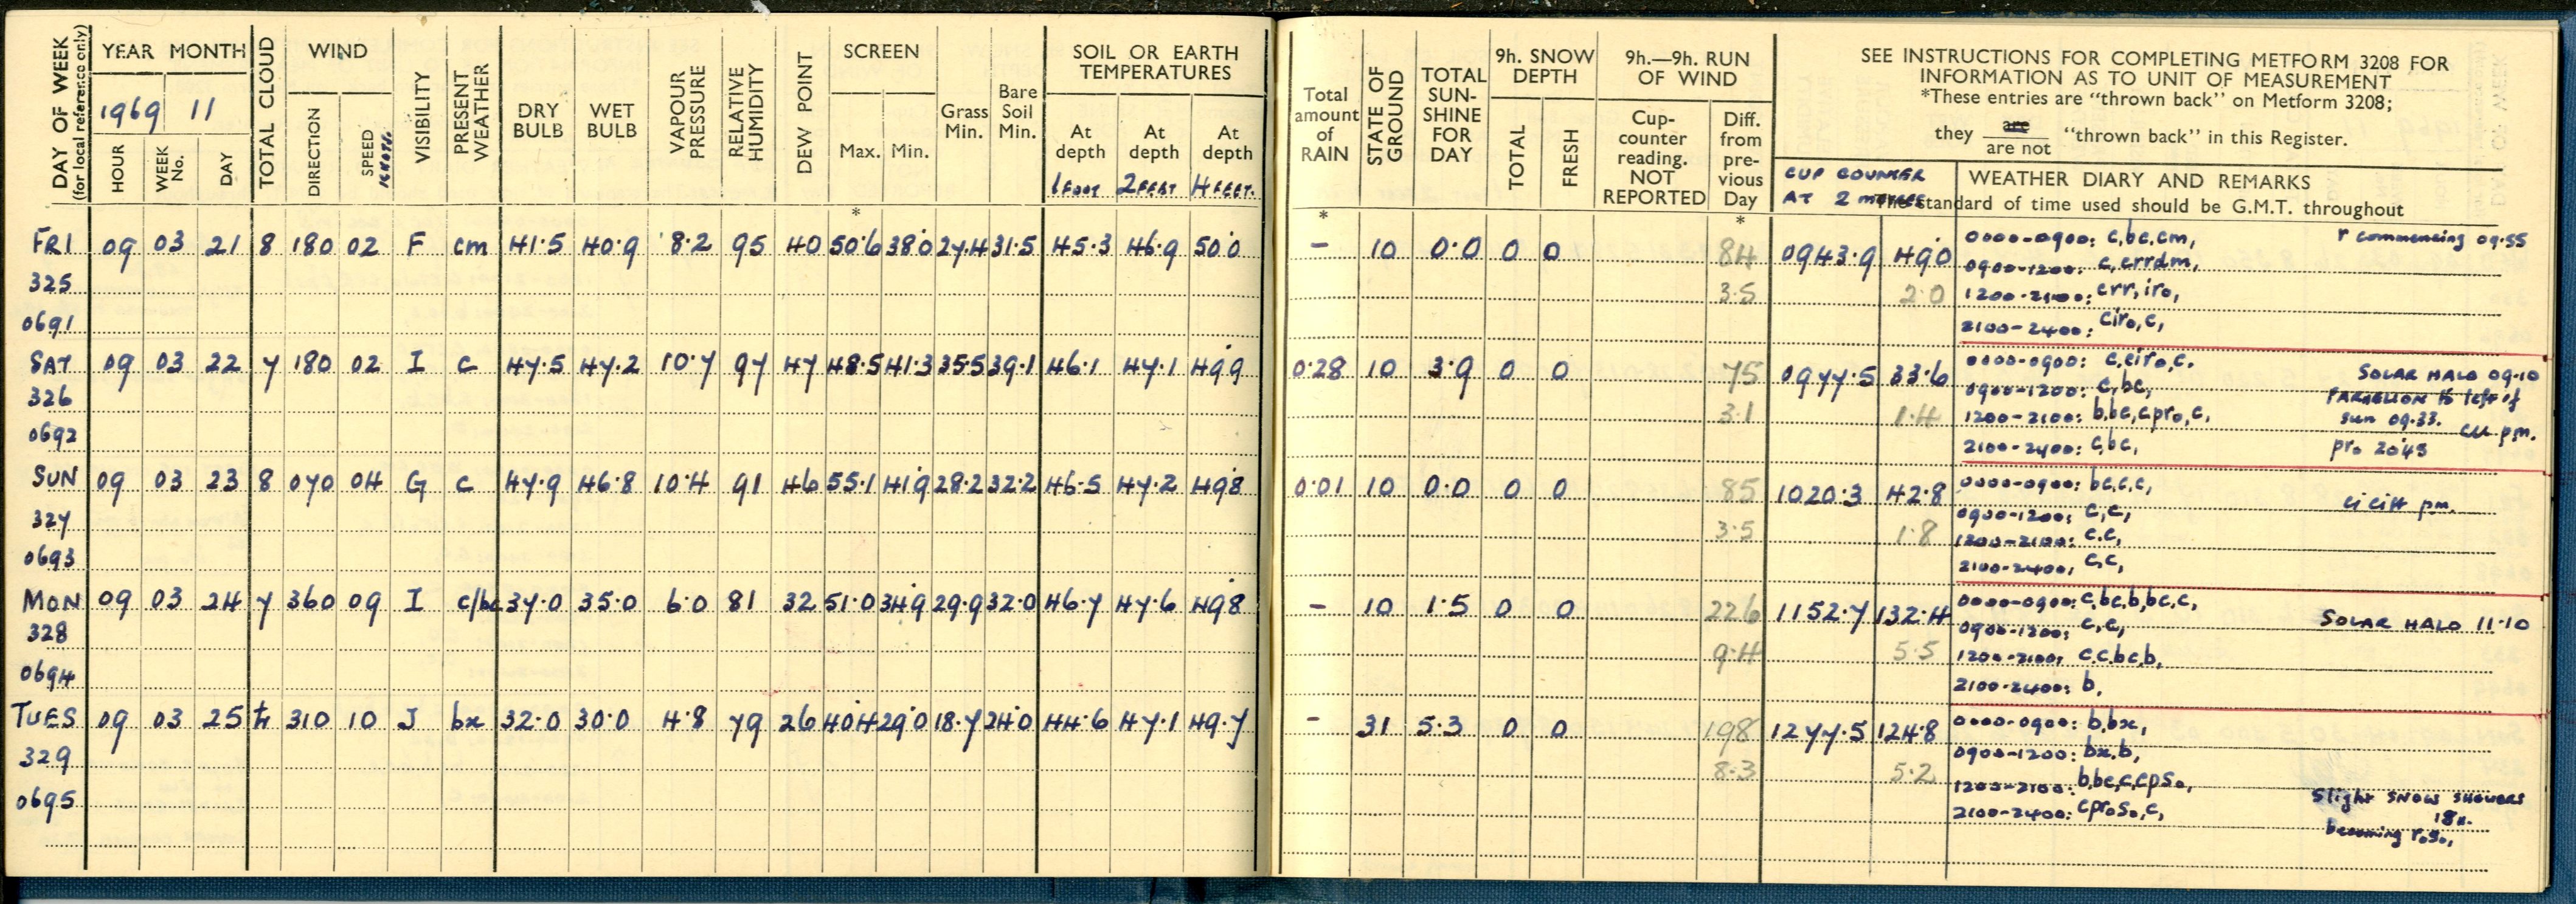 DAY OF WEEK
(for local reference only)
YEAR MONTH
1969 11
HOUR
WEEK No.
DAY
TOTAL CLOUD
WIND
DIRECTION
SPEED
KNOTS
VISIBILITY
PRESENT WEATHER
DRY BULB
WET BULB
VAPOUR PRESSURE
RELATIVE HUMIDITY
DEW POINT
SCREEN
Max.
Min.
Grass Min.
Bare Soil Min.
SOIL OR EARTH TEMPERATURES
At depth 1 FOOT
At depth 2 FEET
At depth 4 FEET.
Total amount of RAIN
STATE OF GROUND
TOTAL SUN-SHINE FOR DAY
9h. SNOW DEPTH
TOTAL
FRESH
9h.—9h. RUN OF WIND
Cup-counter reading. NOT REPORTED
Diff. from pre-vious Day
SEE INSTRUCTIONS FOR COMPLETING METFORM 3208 FOR
INFORMATION AS TO UNIT OF MEASUREMENT
*These entries are “thrown back” on Metform 3208;
they are / are not “thrown back” in this Register.
CUP COUNTER
AT 2 METRES
WEATHER DIARY AND REMARKS
The standard of time used should be G.M.T. throughout
* * *
FRI 09 03 21 8 180 02 F cm 41.5 40.9 8.2 95 40 50.6 38.0 27.4 31.5 45.3 46.9 50.0 – 10 0.0 0 0 84 0943.9 49.0
325 3.5 2.0
0691
0000-0900: c,bc,cm,
r commencing 09.55
0900-1200: c,crrdm,
1200-2100: crr,iro,
2100-2400: ciro,c,
SAT 09 03 22 7 180 02 I c 47.5 47.2 10.7 97 47 48.5 41.3 35.5 39.1 46.1 47.1 49.9 0.28 10 3.9 0 0 75 0977.5 33.6
326 3.1 1.4
0692
0000-0900: c,ciro,c.
SOLAR HALO 09.10
0900-1200: c,bc,
PARHELION to left of
1200-2100: b,bc,cpro,c,
sun 09.33. cu pm.
2100-2400: c,bc,
pro 2045
SUN 09 03 23 8 070 04 G c 47.9 46.8 10.4 91 46 55.1 41.9 28.2 32.2 46.5 47.2 49.8 0.01 10 0.0 0 0 85 1020.3 42.8
327 3.5 1.8
0693
0000-0900: bc,c,c,
0900-1200: c,c,
1200-2100: c.c,
2100-2400: c,c,
MON 09 03 24 7 360 09 I c/bc 37.0 35.0 6.0 81 32 51.0 34.9 29.9 32.0 46.7 47.6 49.8 – 10 1.5 0 0 226 1152.7 132.4
328 9.4 5.5
0694
0000-0900: c,bc,b,bc,c,
0900-1200: c,c,
SOLAR HALO 11.10
1200-2100: c.c.bc.b,
2100-2400: b,
TUES 09 03 25 310 10 J bx 32.0 30.0 4.8 79 26 40.4 29.0 18.7 24.0 44.6 47.1 49.7 – 31 5.3 0 0 198 1277.5 124.8
329 8.3 5.2
0695
0000-0900: b,bx,
0900-1200: bx.b,
1200-2100: b,bc,c,cpso,
2100-2400: cproso,c,
Slight SNOW SHOWERS
becoming roso,